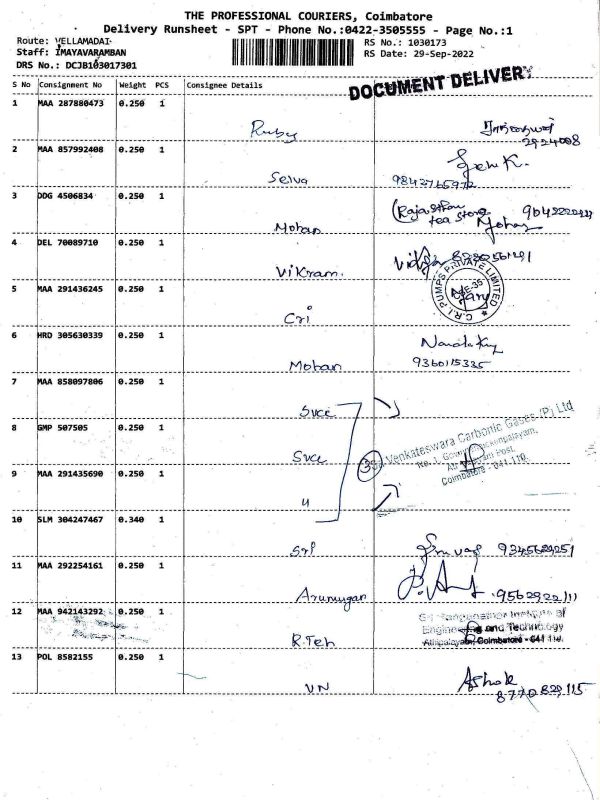 THE PROFESSIONAL COURIERS, Coimbatore
Delivery Runsheet - SPT - Phone No.:0422-3505555 - Page No.:1
Route: VELLAMADAI
RS No.: 1030173
Staff: IMAYAVARAMBAN
RS Date: 29-Sep-2022
DRS No.: DCJB103017301
DOCUMENT DELIVERY
S No Consignment No Weight PCS Consignee Details
1 MAA 287880473 0.250 1
Ruby
2924008
2 MAA 857992408 0.250 1
Selva
3 DDG 4506834 0.250 1
Mohan
(Rajasthan
tea Store
4 DEL 70089710 0.250 1
Vikram
5 MAA 291436245 0.250 1
Cri
C.R.I. PUMPS PRIVATE LIMITED
6 HRD 305630339 0.250 1
Mohan
9360115335
7 MAA 858097806 0.250 1
SVCE
8 GMP 507505 0.250 1
SVCE
Venkateswara Carbonic Gases (P) Ltd
Coimbatore - 641 110.
9 MAA 291435690 0.250 1
10 SLM 304247467 0.340 1
Sri
9345629251
11 MAA 292254161 0.250 1
Arumugan
12 MAA 942143292 0.250 1
R.Teh
Institute of
Engineering and Technology
Coimbatore - 641 110.
13 POL 8582155 0.250 1
VN
Ashok